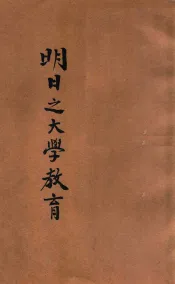 明日之大學教育